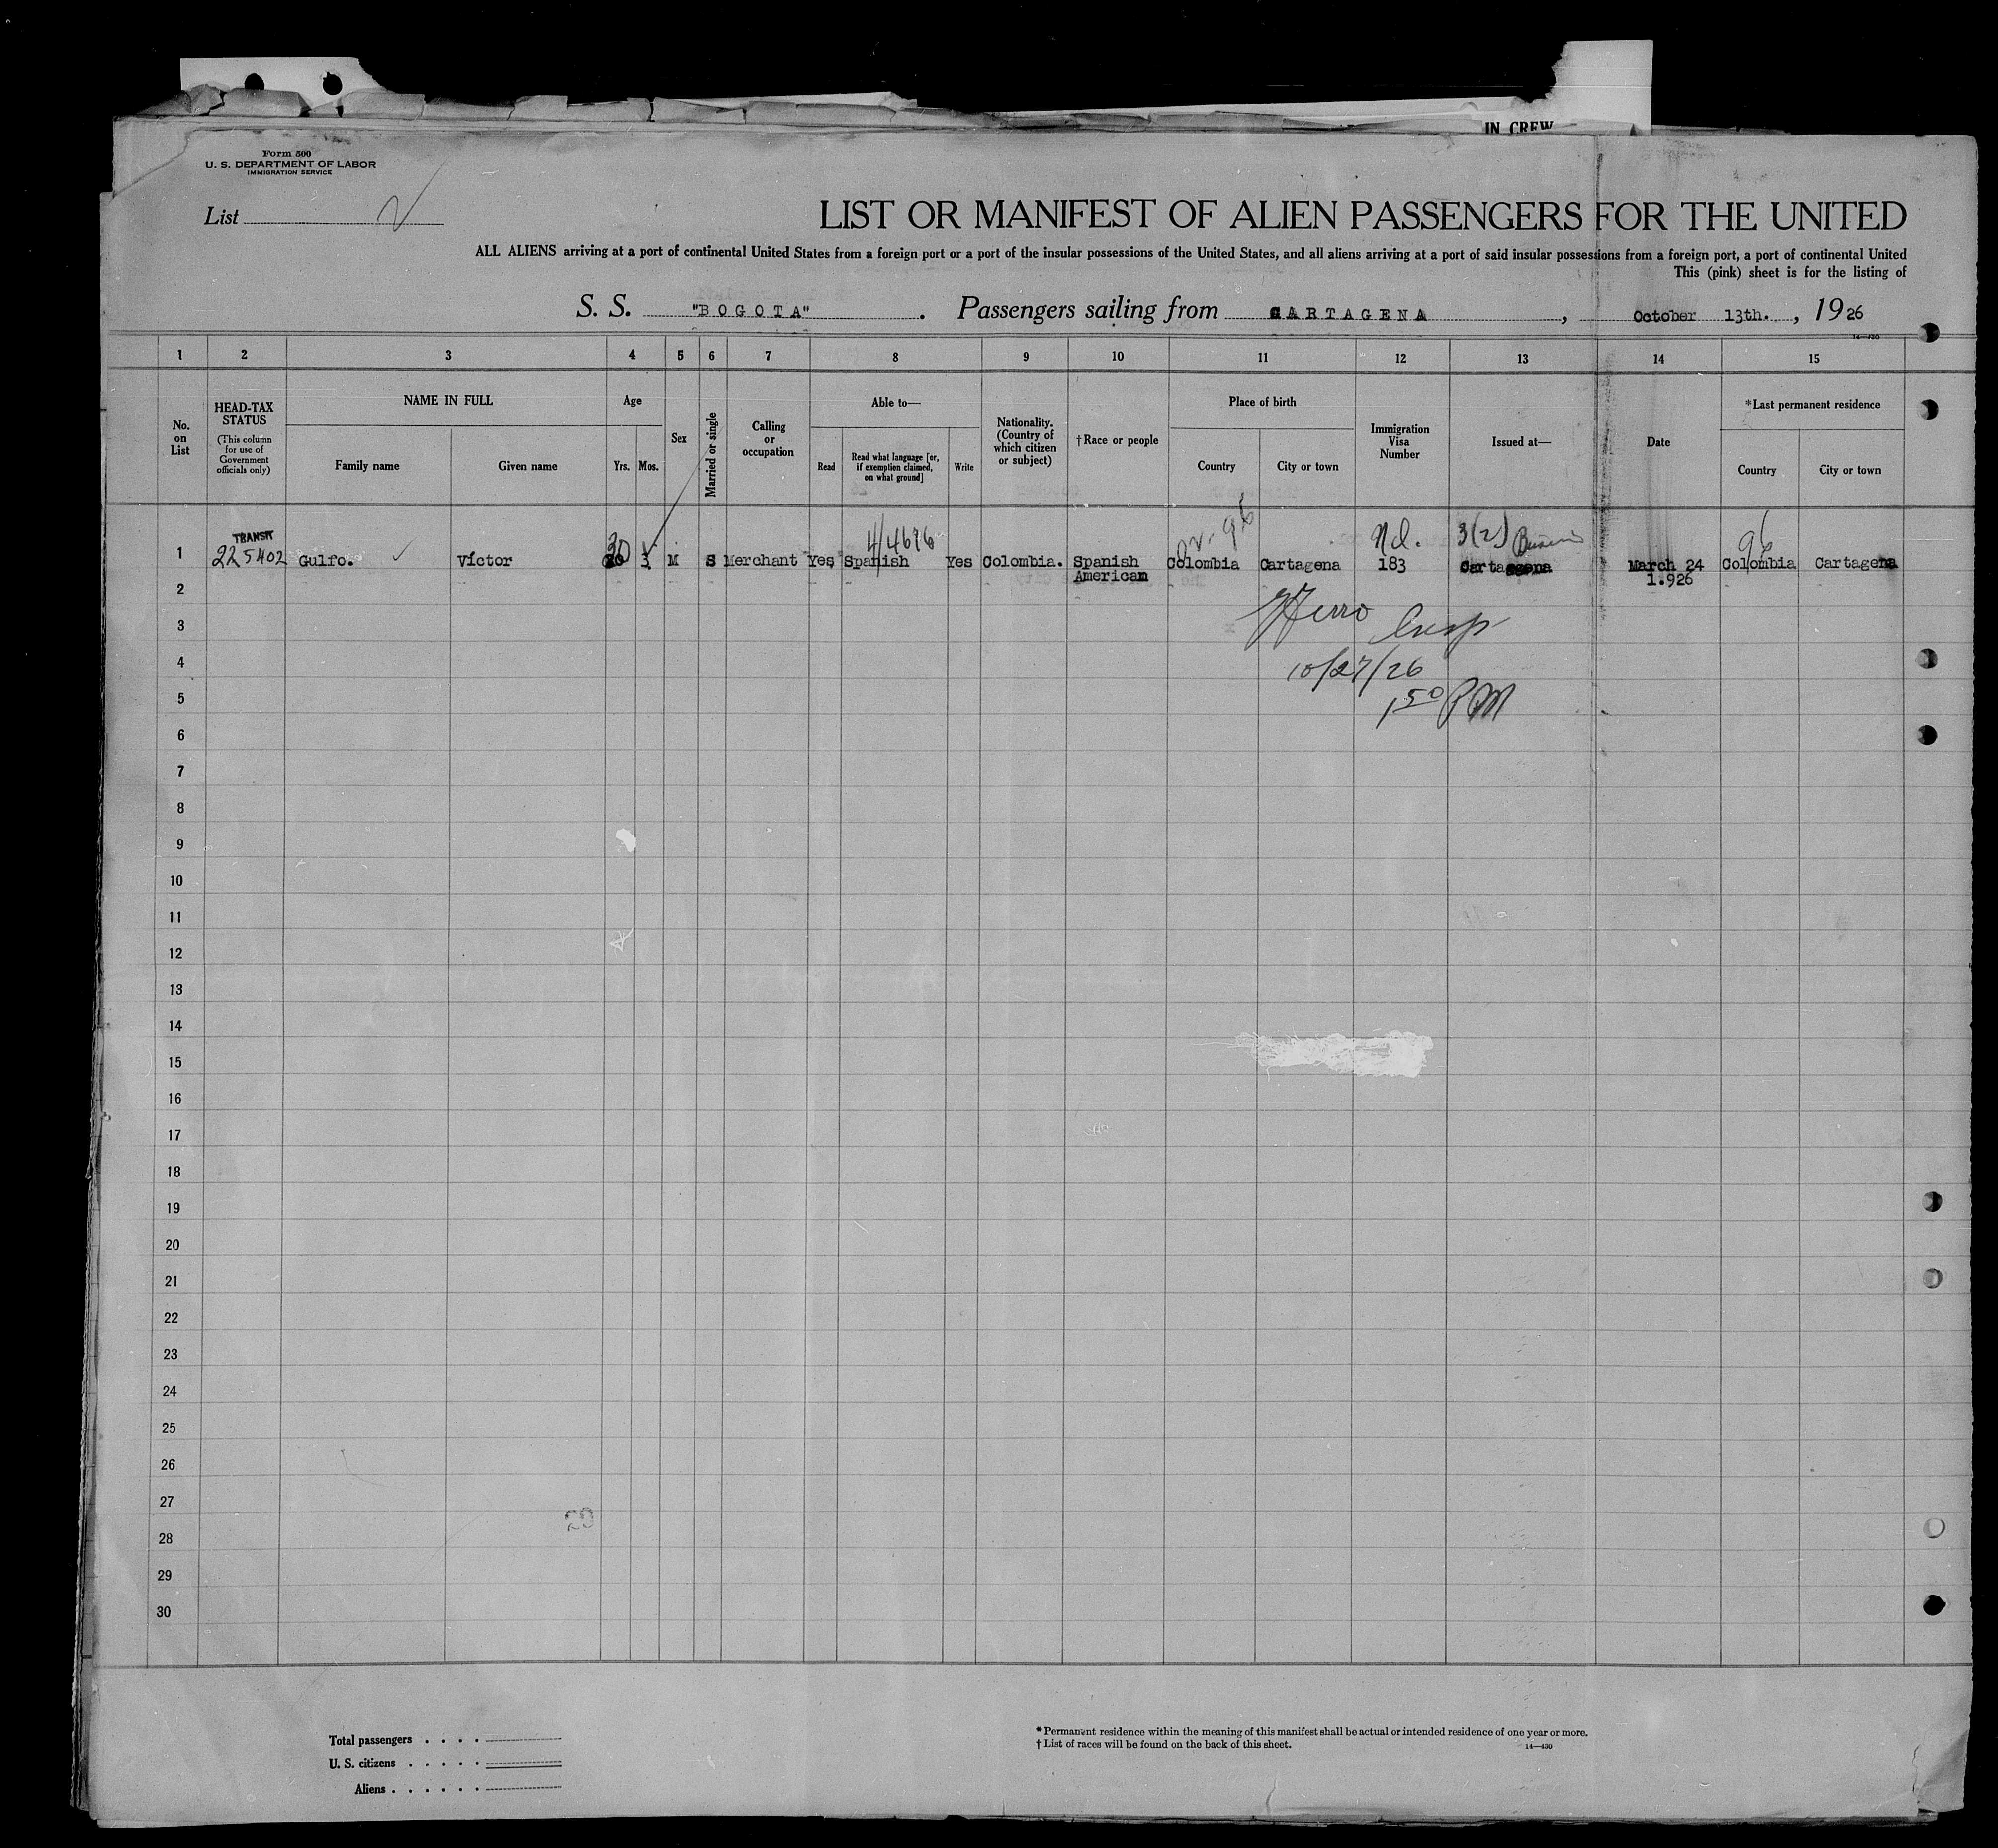 IN CREW
Form 500
U. S. DEPARTMENT OF LABOR
IMMIGRATION SERVICE
List
LIST OR MANIFEST OF ALIEN PASSENGERS FOR THE UNITED
ALL ALIENS arriving at a port of continental United States from a foreign port or a port of the insular possessions of the United States, and all aliens arriving at a port of said insular possessions from a foreign port, a port of continental United
This (pink) sheet is for the listing of
S. S. "BOGOTA". Passengers sailing from CARTAGENA, October 13th., 1926
14—430
1 2 3 4 5 6 7 8 9 10 11 12 13 14 15
No. on List
HEAD-TAX STATUS (This column for use of Government officials only)
NAME IN FULL
Family name
Given name
Age
Yrs. Mos.
Sex
Married or single
Calling or occupation
Able to—
Read
Read what language [or, if exemption claimed, on what ground]
Write
Nationality. (Country of which citizen or subject)
†Race or people
Place of birth
Country
City or town
Immigration Visa Number
Issued at—
Date
*Last permanent residence
Country
City or town
TRANSIT 30 4/4696 96 3(2) 96
1 225402 Gulfo. Víctor 3 M S Merchant Yes Spanish Yes Colombia. Spanish Colombia Cartagena 183 Cartagena March 24 Colombia Cartagena
American 1.926
2
3
4 10/27/26
5 1 50 PM
6
7
8
9
10
11
12
13
14
15
16
17
18
19
20
21
22
23
24
25
26
27
28
29
30
Total passengers . . . .
U. S. citizens . . . . .
Aliens . . . . . .
* Permanent residence within the meaning of this manifest shall be actual or intended residence of one year or more.
† List of races will be found on the back of this sheet.
14—430